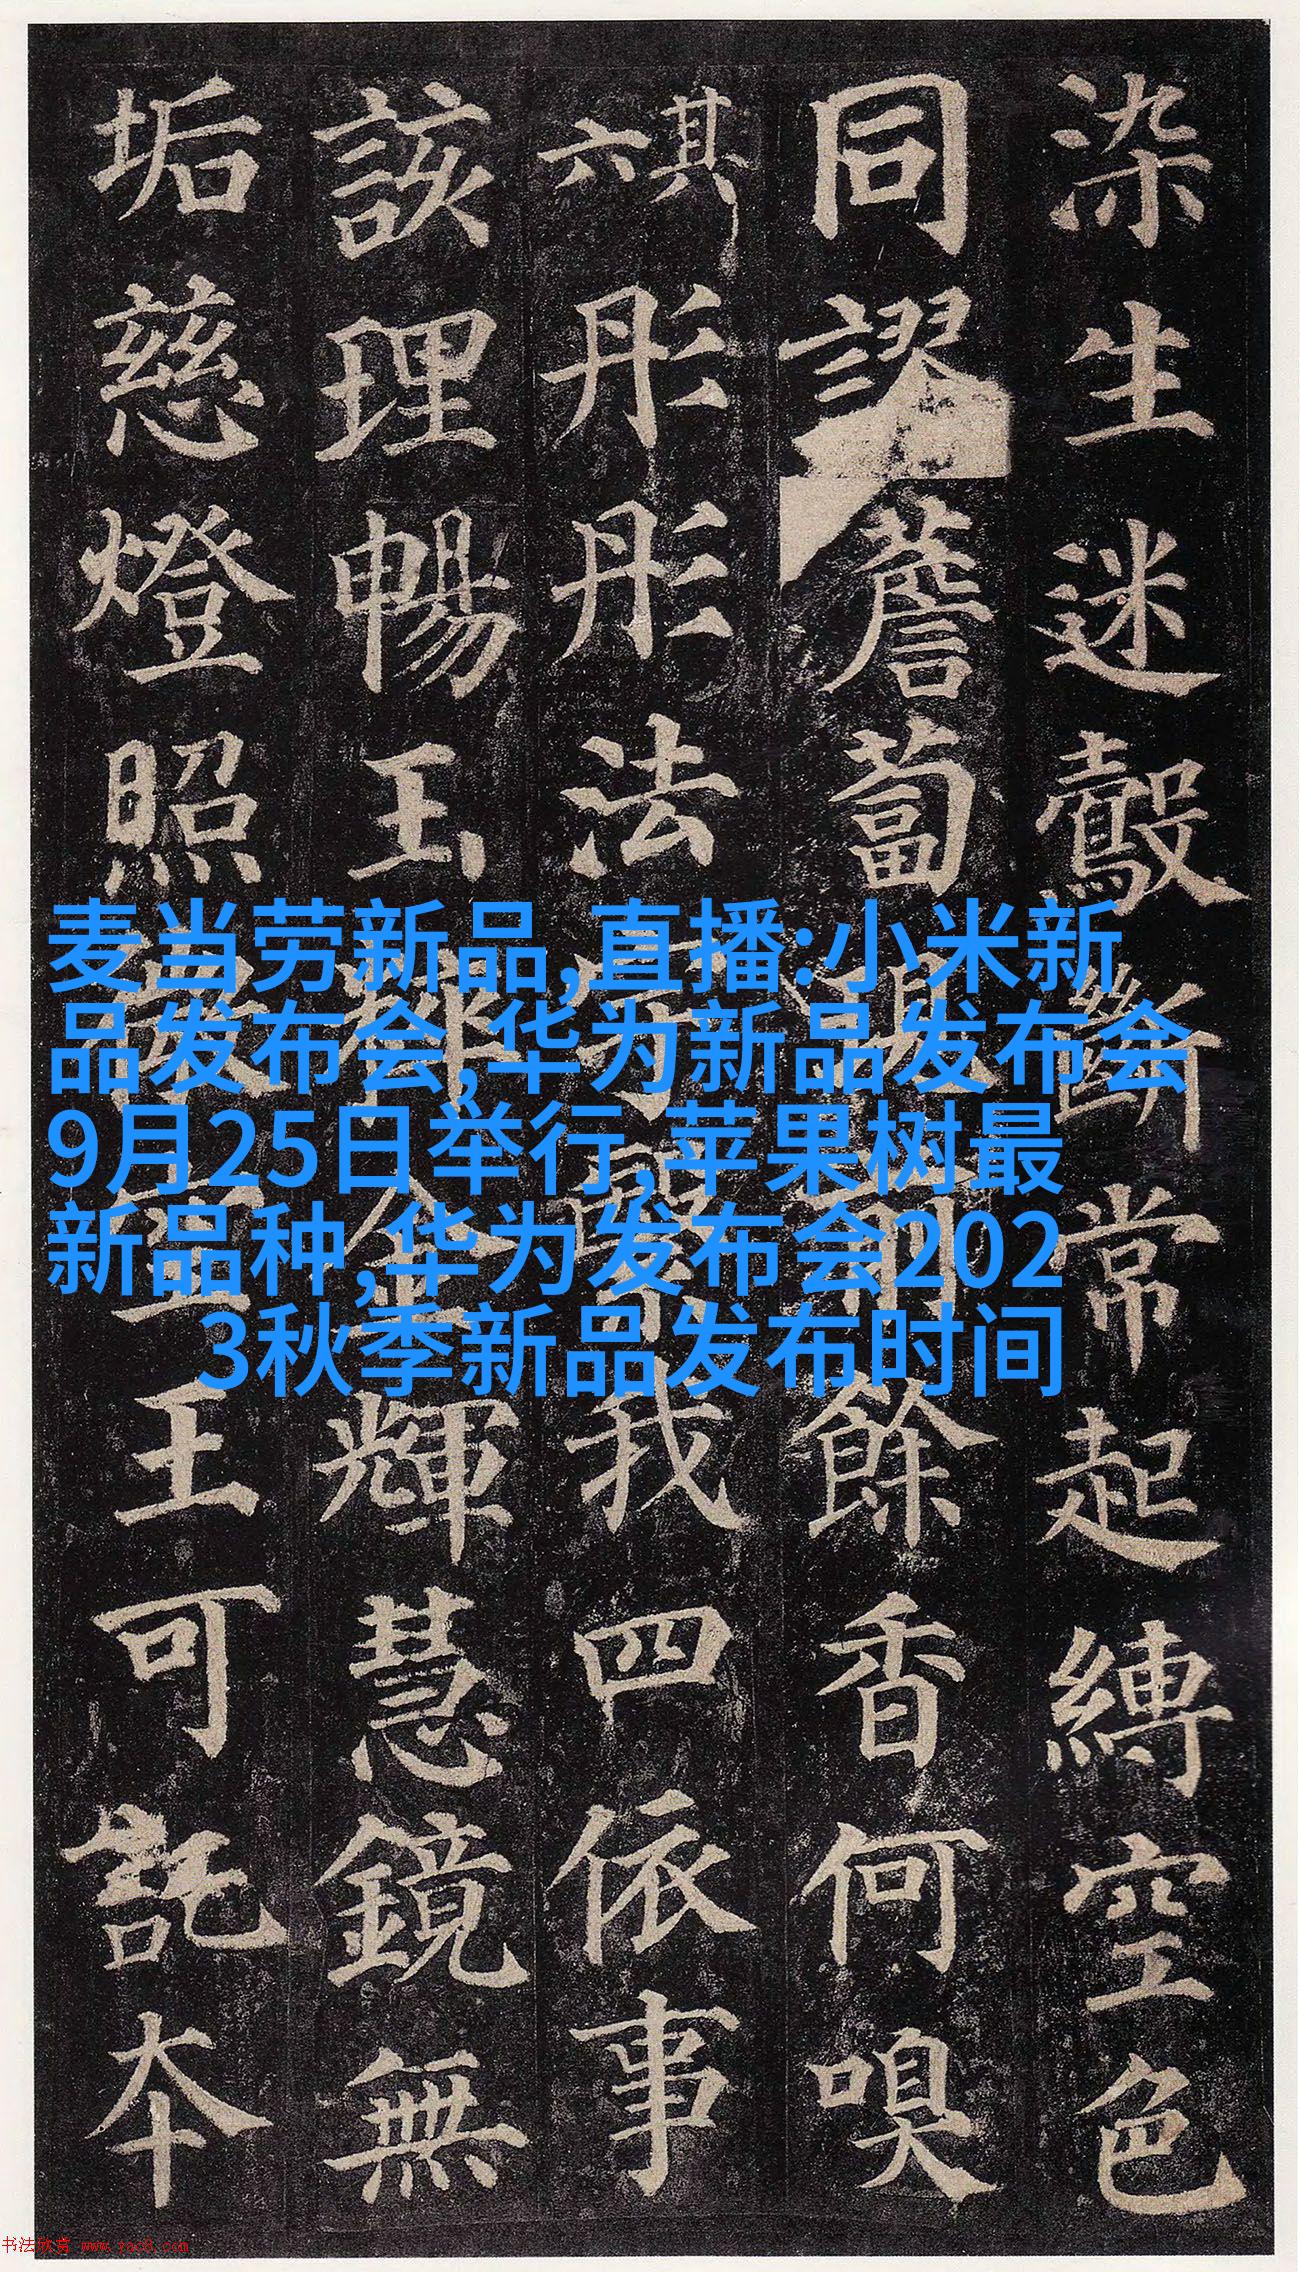 染生迷鷇斷常起縛空色
同謬薝蔔現前餘香何嗅
其六彤彤法宇繄我四依事
該理暢玉粹金輝慧鏡無
垢慈燈照微空王可託本
麦当劳新品,直播:小米新
品发布会,华为新品发布会
9月25日举行,苹果树最
新品种,华为发布会202
3秋季新品发布时间
书法欣赏 www.yac8.com